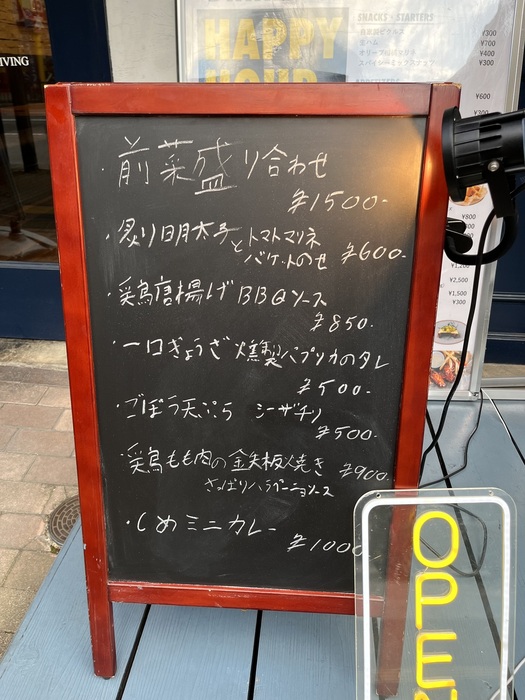 HAPPY
HOUR
SNACKS & STARTERS
¥300
¥700
¥400
¥300
¥600
¥300
¥800
¥2,500
¥1,500
¥300
・前菜盛り合わせ
¥1500-
・炙り明太子とトマトマリネ
バケットのせ ¥600-
・鶏唐揚げBBQソース
¥850-
・一口ぎょうざ 燻製パプリカのタレ
¥500-
・ごぼう天ぷら シーザチリ
¥500-
・鶏もも肉の鉄板焼き ¥900-
さっぱりハラペーニョソース
・〆めミニカレー
¥1000-
OPE